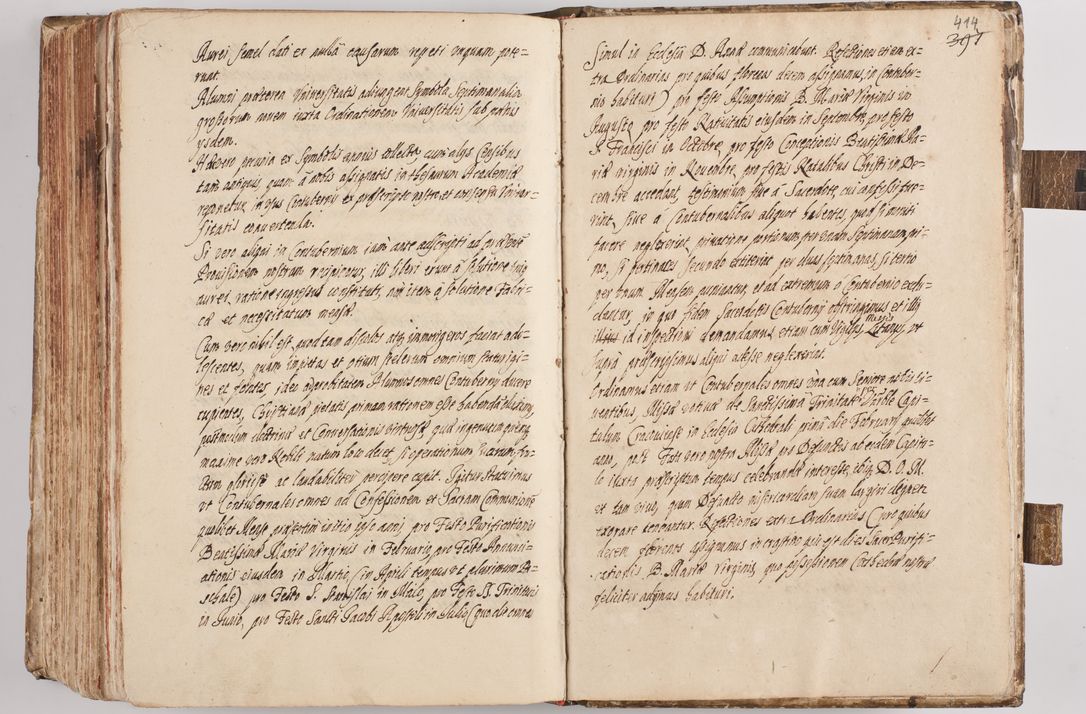 Aurei semel dati ex nulla causarum repeti unquam pote=
runt.
Alumni praeterea Universitatis adiungent Symbola Septimanalia
grossorum novem iuxta Ordinationem Universitatis sub poenis
ysdem.
Hoc vero pecunia ex Symbolis annis collecta, cum alys Censibus
tam antiquis, quam a nobis assignatis in thesaurum Academiae
reponetur, in usus Contuberny ex praescripto nostro et consensu Univer=
sitatis convertenda.
Si vero aliqui in Contubernium iam ante adscripti ad praesentem
Provisionem nostram recipientur, illi liberi erunt a solutione huius
aurei, ratione ingressus constituti, non item a solutione Fabri=
cae et necessitatum mensae.
Cum vero nihil est, quod tam dissolutos atque immorigeros faciat ado=
lescentes, quam impietas et otium scelerum omnium scaturigi=
nes et fontes, ideo a pravitatem Alumnos omnes Contuberny avertere
cupientes, Christianae pietatis primam rationem esse habendam ducimus,
postmodum doctrinae et Conversationis virtuosae, quae ingenuum quemque
maxime vero Nobili natum loco decet, si operationum suarum fru=
ctum gloriose ac laudabiliter percipere cupit. Igitur statuimus
ut Contubernales omnes ad Confessionem et Sacram Communionem
quolibet Mense praesertim initio ipso anni, pro Festo Purificationis
Beatissimae Mariae Virginis in Februario, pro Festo Annunti=
ationis eiusdem in Martio, (in Aprili tempus est plurimum Pa=
schale) pro Festo S. Stanislai in Maio, pro Festo SS. Trinitatis
in Iunio, pro Festo Sancti Iacobi Apostoli in Iulio (quo die omnes
414
397
Simul in Ecclesia D. Annae communicabunt. Refectiones etiam ex=
tra Ordinarias pro quibus florenos decem assignamus, in Contuber=
nio habituri) pro festo Assumptionis B. Mariae Virginis in
Augusto, pro festo Nativitatis eiusdem in Septembre, pro festo
S. Francisci in Octobre, pro festo Conceptionis Beatissimae Ma=
riae Virginis in Novembre, pro festis Natalibus Christi in De=
cembre accedant, testimonium sive a Sacerdote, cui confessi fue=
rint, sive a Contubernalibus aliquot habentes, quod si moniti
facere neglexerint, privatione portionum, per unam Septimanam pri=
mo, si pertinaces secundo extiterint per duas septimanas, si tertio
per unum Mensem puniantur, et ad extremum e Contubernio exclu=
dantur, in quo fidem Sacerdotis Contuberny obstringimus et illi
illius id inspectioni demandamus, etiam cum Vigilys, Magis Litanys, ut
supra praescripsimus aliqui adesse neglexerint.
Ordinamus etiam ut Contubernales omnes una cum Seniore nobis vi=
ventibus, Missae votivae de Sanctissima Trinitate per Venerabile Capi=
tulum Cracoviense in Ecclesia Cathedrali nona die February quolibet
anno, post Fata vero nostra Missae pro Defunctis ab eodem Capitu=
lo iuxta praescriptum tempus celebrandae interesse, ibique D. O. M.
et tam vivo, quam Defuncto misericordiam suam largiri dignetur
exorare teneantur. Refectiones extra Ordinarias (pro quibus
decem florenos assignamus in crastino usque post dies Sacro Purifi=
cationis B. Mariae Virginis, quo possessionem Cathedrae nostrae
feliciter adymus habituri.